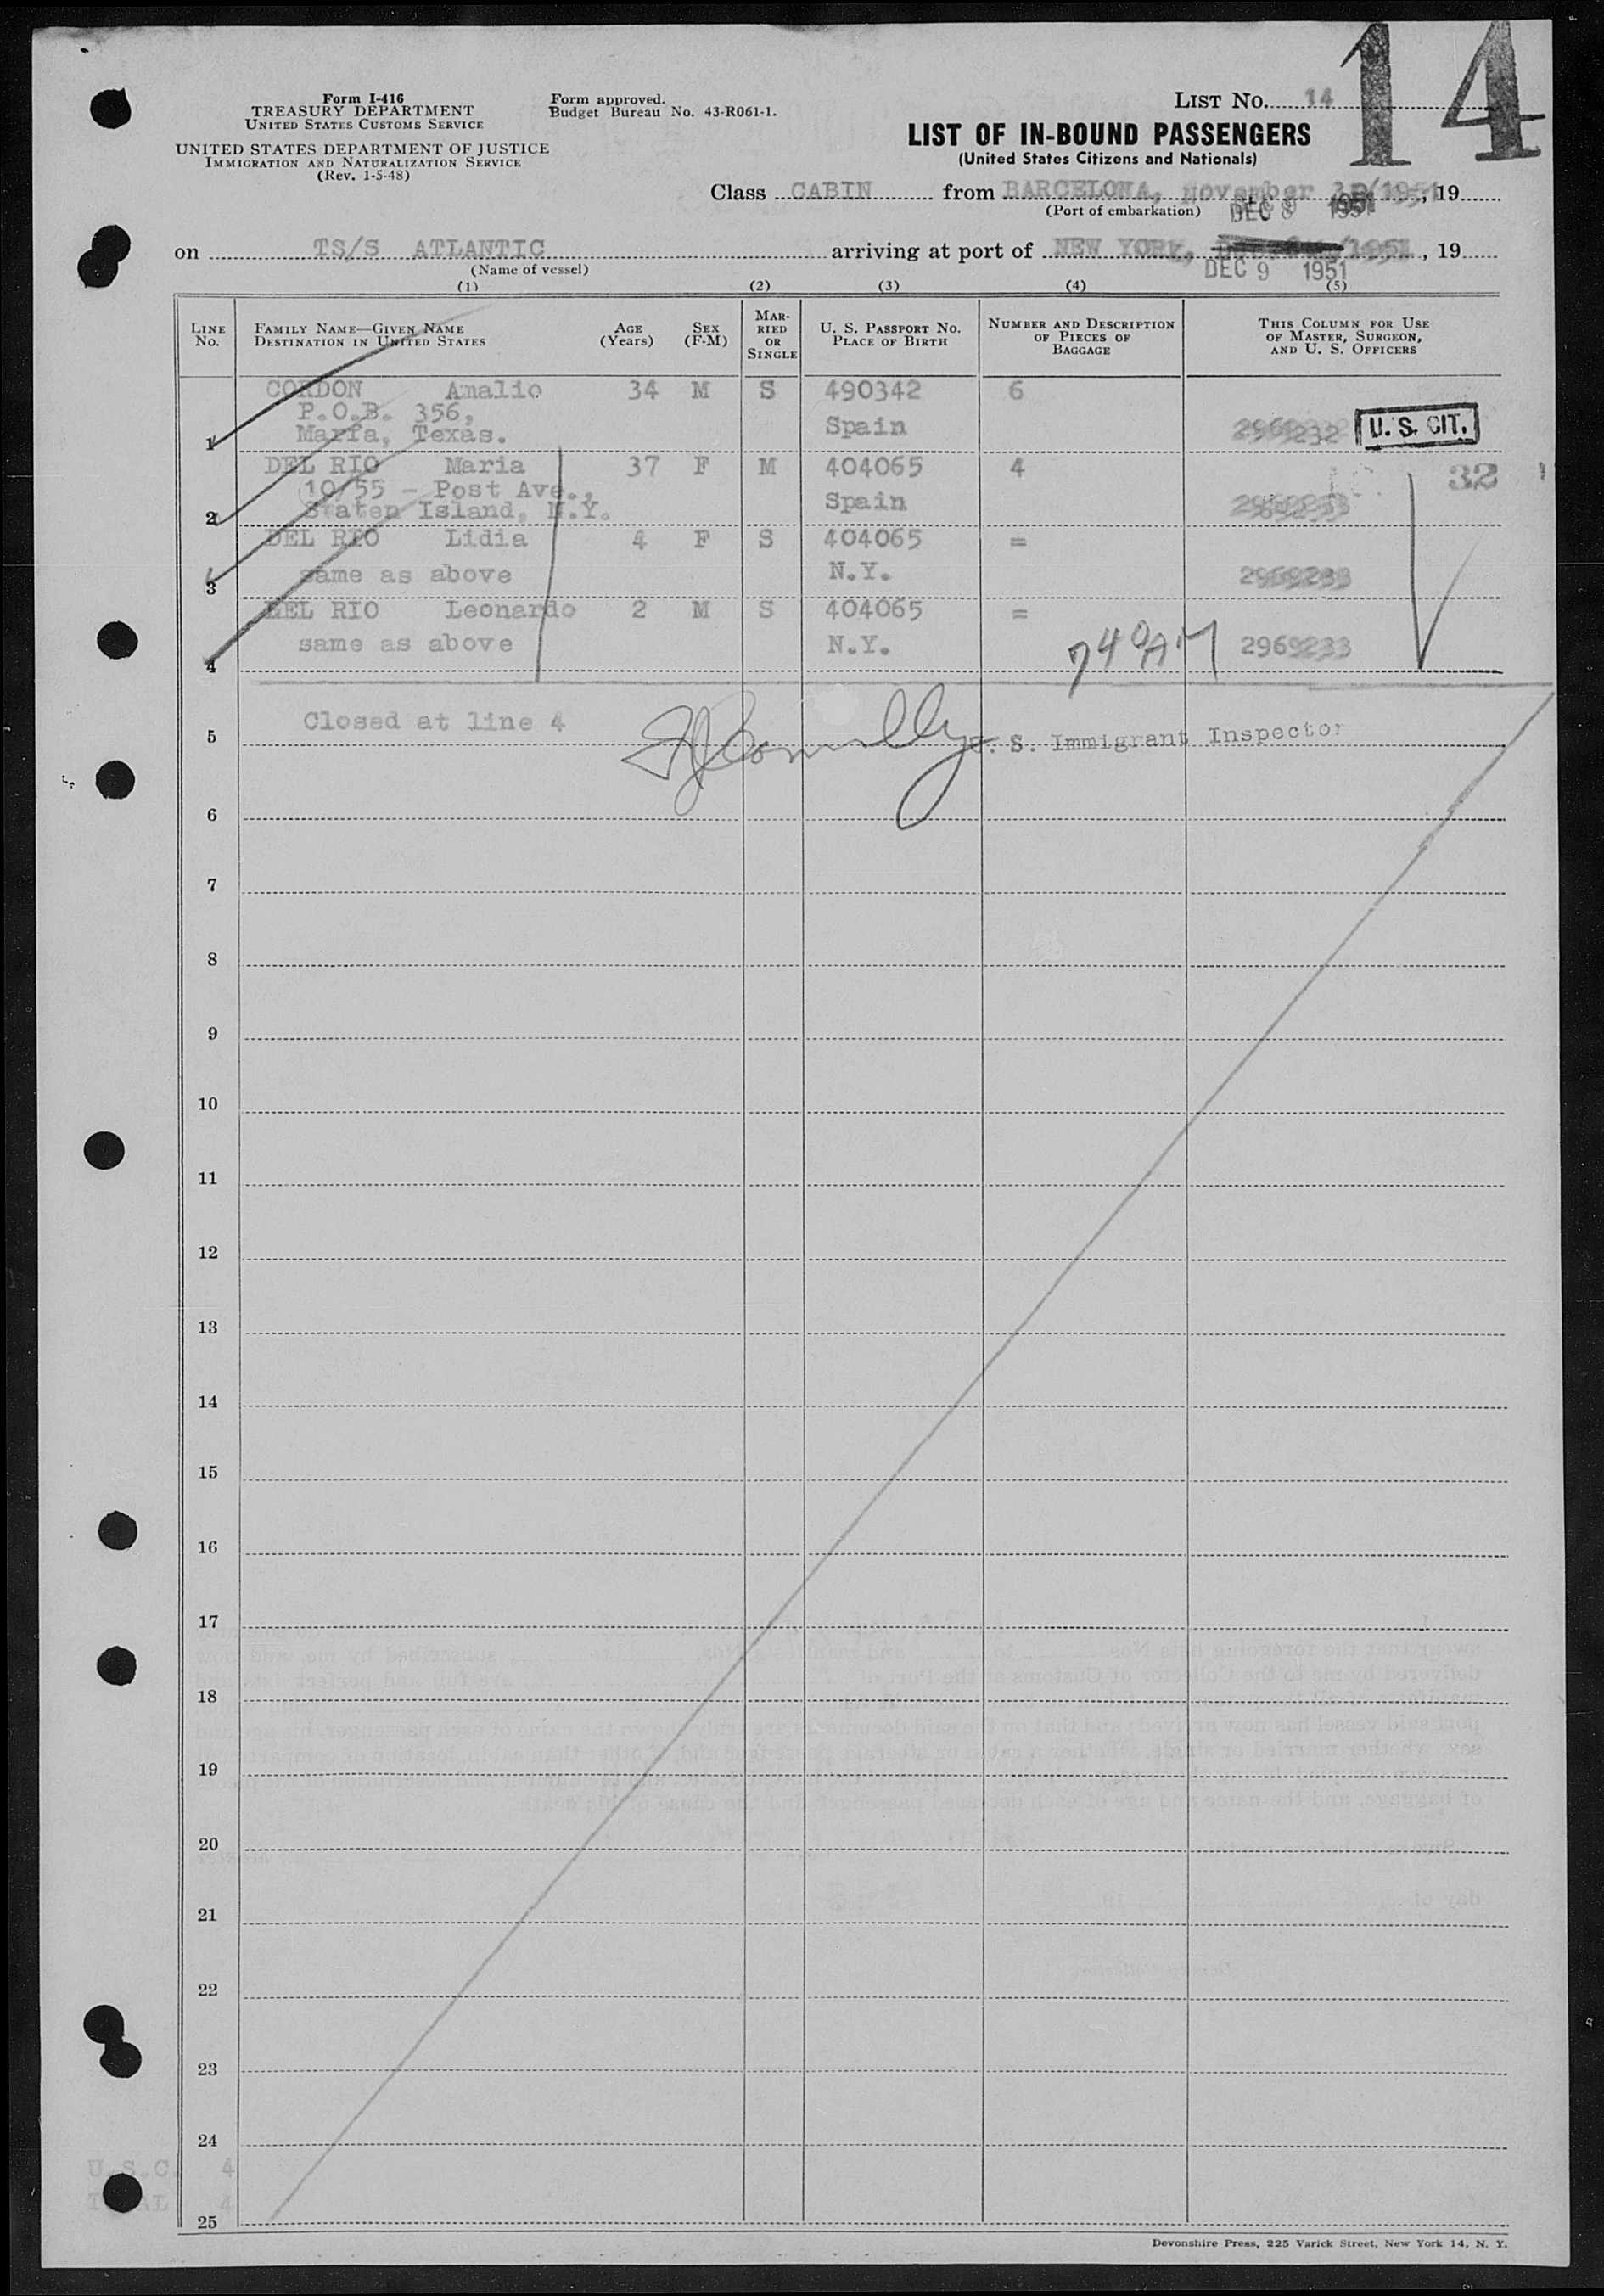 14
Form I-416
TREASURY DEPARTMENT
UNITED STATES CUSTOMS SERVICE
UNITED STATES DEPARTMENT OF JUSTICE
IMMIGRATION AND NATURALIZATION SERVICE
(Rev. 1-5-48)
Form approved.
Budget Bureau No. 43-R061-1.
LIST No. 14
LIST OF IN-BOUND PASSENGERS
(United States Citizens and Nationals)
Class CABIN from BARCELONA, November /1951, 19
(Port of embarkation) DEC 8 1951
on TS/S ATLANTIC arriving at port of NEW YORK, /1951, 19
(Name of vessel) DEC 9 1951
(1) (2) (3) (4) (5)
LINE No. FAMILY NAME—GIVEN NAME DESTINATION IN UNITED STATES AGE (Years) SEX (F-M) MARRIED OR SINGLE U. S. PASSPORT NO. PLACE OF BIRTH NUMBER AND DESCRIPTION OF PIECES OF BAGGAGE THIS COLUMN FOR USE OF MASTER, SURGEON, AND U. S. OFFICERS
CORDON Amalio 34 M S 490342 6
P.O.B. 356, Spain 2969232 U.S. CIT.
1 Marfa, Texas.
DEL RIO Maria 37 F M 404065 4 32
10/55 - Post Ave., Spain 2969233
2 Staten Island, N.Y.
DEL RIO Lidia 4 F S 404065 =
3 same as above N.Y. 2969233
DEL RIO Leonardo 2 M S 404065 =
4 same as above N.Y. 740AM 2969233
5 Closed at line 4 U. S. Immigrant Inspector
6
7
8
9
10
11
12
13
14
15
16
17
18
19
20
21
22
23
24
U.S.C. 4
TOTAL 4
25
Devonshire Press, 225 Varick Street, New York 14, N. Y.